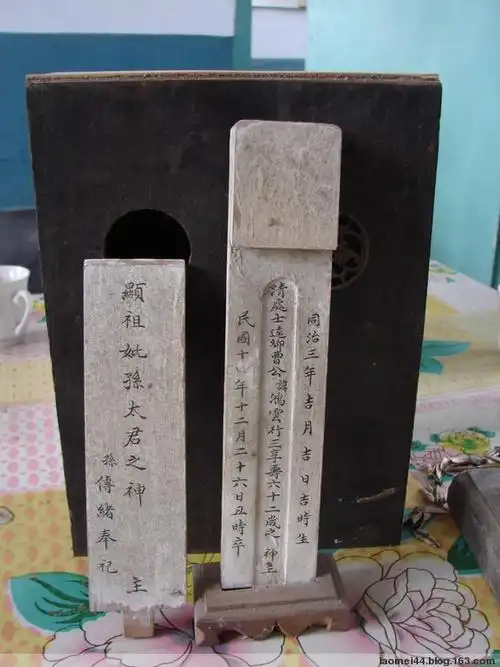 同治三年吉月吉日吉時生
清處士逺曹公諱鴻雲行三享壽六十二歲之神主
民國十四年十二月二十六日丑時卒
顯祖妣孫太君之神主
孫傳緒奉祀
laomei44.blog.163.com